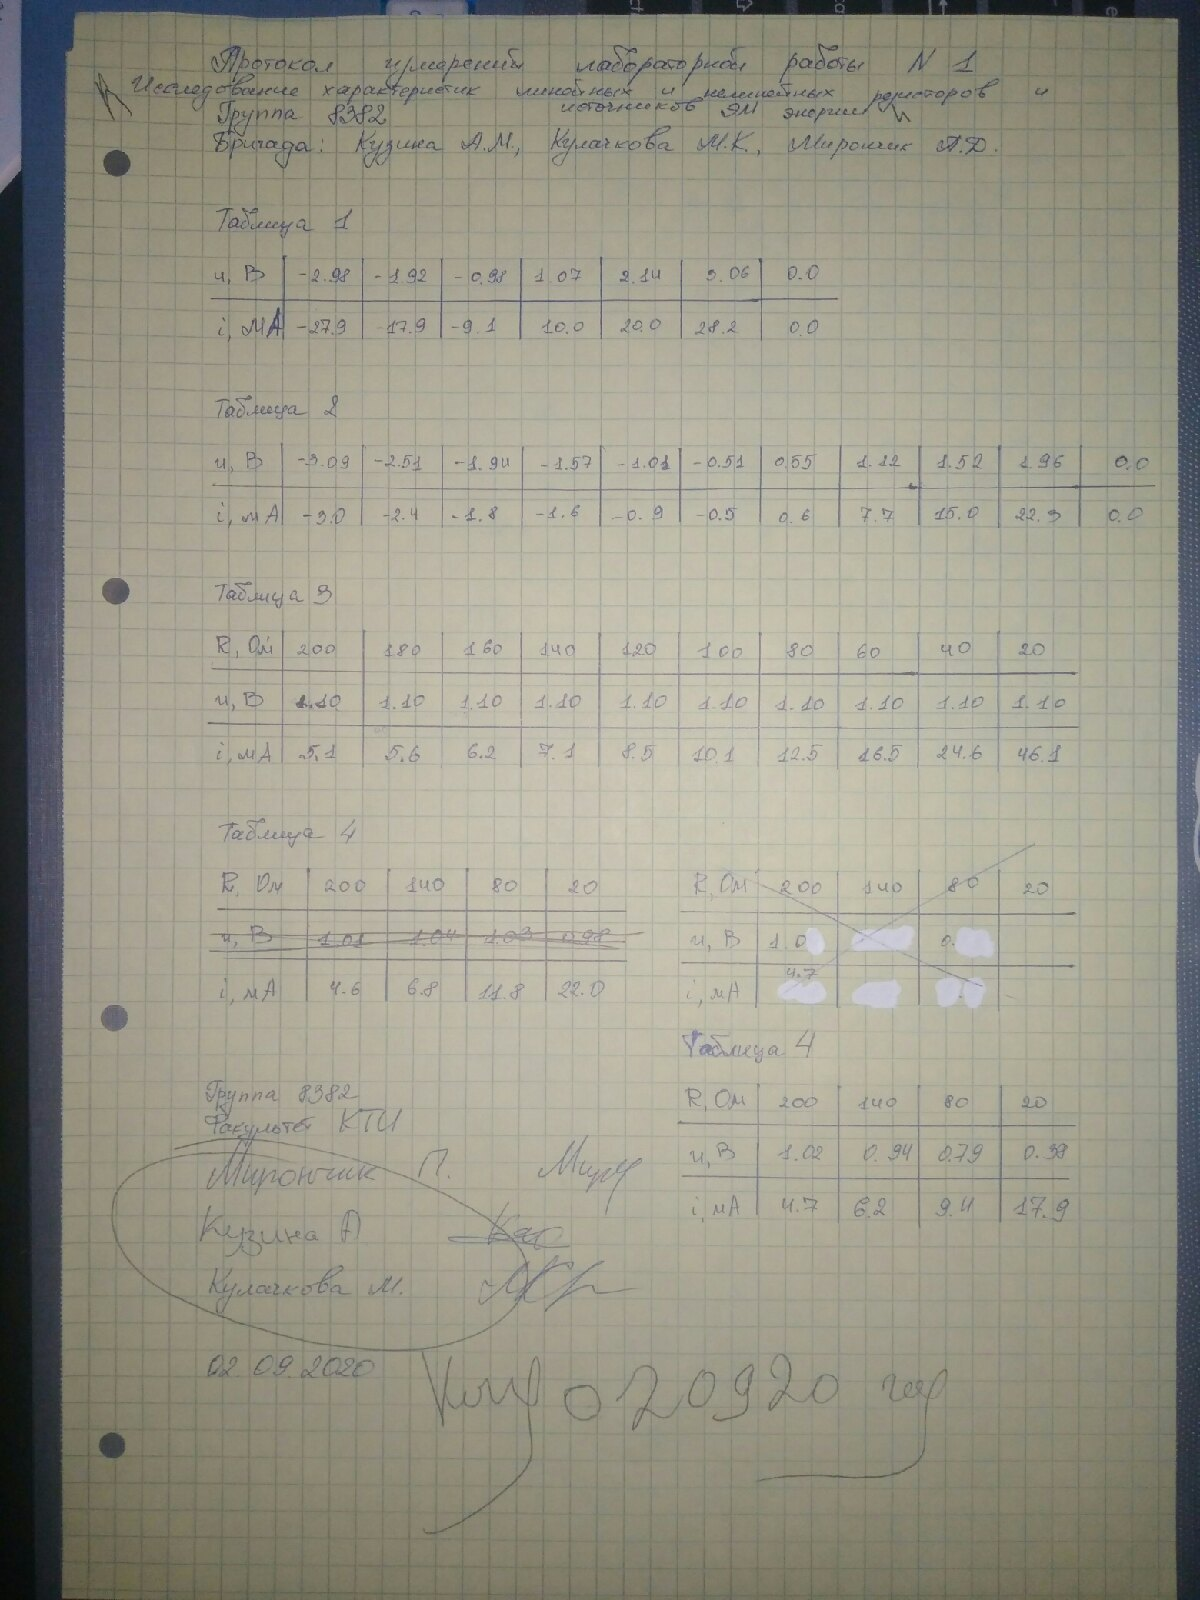 Протокол измерений лабораторной работы N 1
"Исследование характеристик линейных и нелинейных резисторов и
источников ЭМ энергии"
Группа 8382
Бригада: Кузина А.М., Кулачкова М.К., Мирончик П.Д.
Таблица 1
u, В -2.98 -1.92 -0.98 1.07 2.14 3.06 0.0
i, мА -27.9 -17.9 -9.1 10.0 20.0 28.2 0.0
Таблица 2
u, В -3.09 -2.51 -1.94 -1.57 -1.01 -0.51 0.55 1.12 1.52 1.96 0.0
i, мА -3.0 -2.4 -1.8 -1.6 -0.9 -0.5 0.6 7.7 15.0 22.3 0.0
Таблица 3
R, Ом 200 180 160 140 120 100 80 60 40 20
u, В 1.10 1.10 1.10 1.10 1.10 1.10 1.10 1.10 1.10 1.10
i, мА 5.1 5.6 6.2 7.1 8.5 10.1 12.5 16.5 24.6 46.1
Таблица 4
R, Ом 200 140 80 20
u, В 1.01 1.04 1.03 0.98
i, мА 4.6 6.8 11.8 22.0
R, Ом 200 140 80 20
u, В 1.0 0.
4.7
i, мА
Таблица 4
R, Ом 200 140 80 20
u, В 1.02 0.94 0.79 0.39
i, мА 4.7 6.2 9.4 17.9
Группа 8382
Факультет КТИ
Мирончик П.
Кузина А
Кулачкова М.
02.09.2020
020920